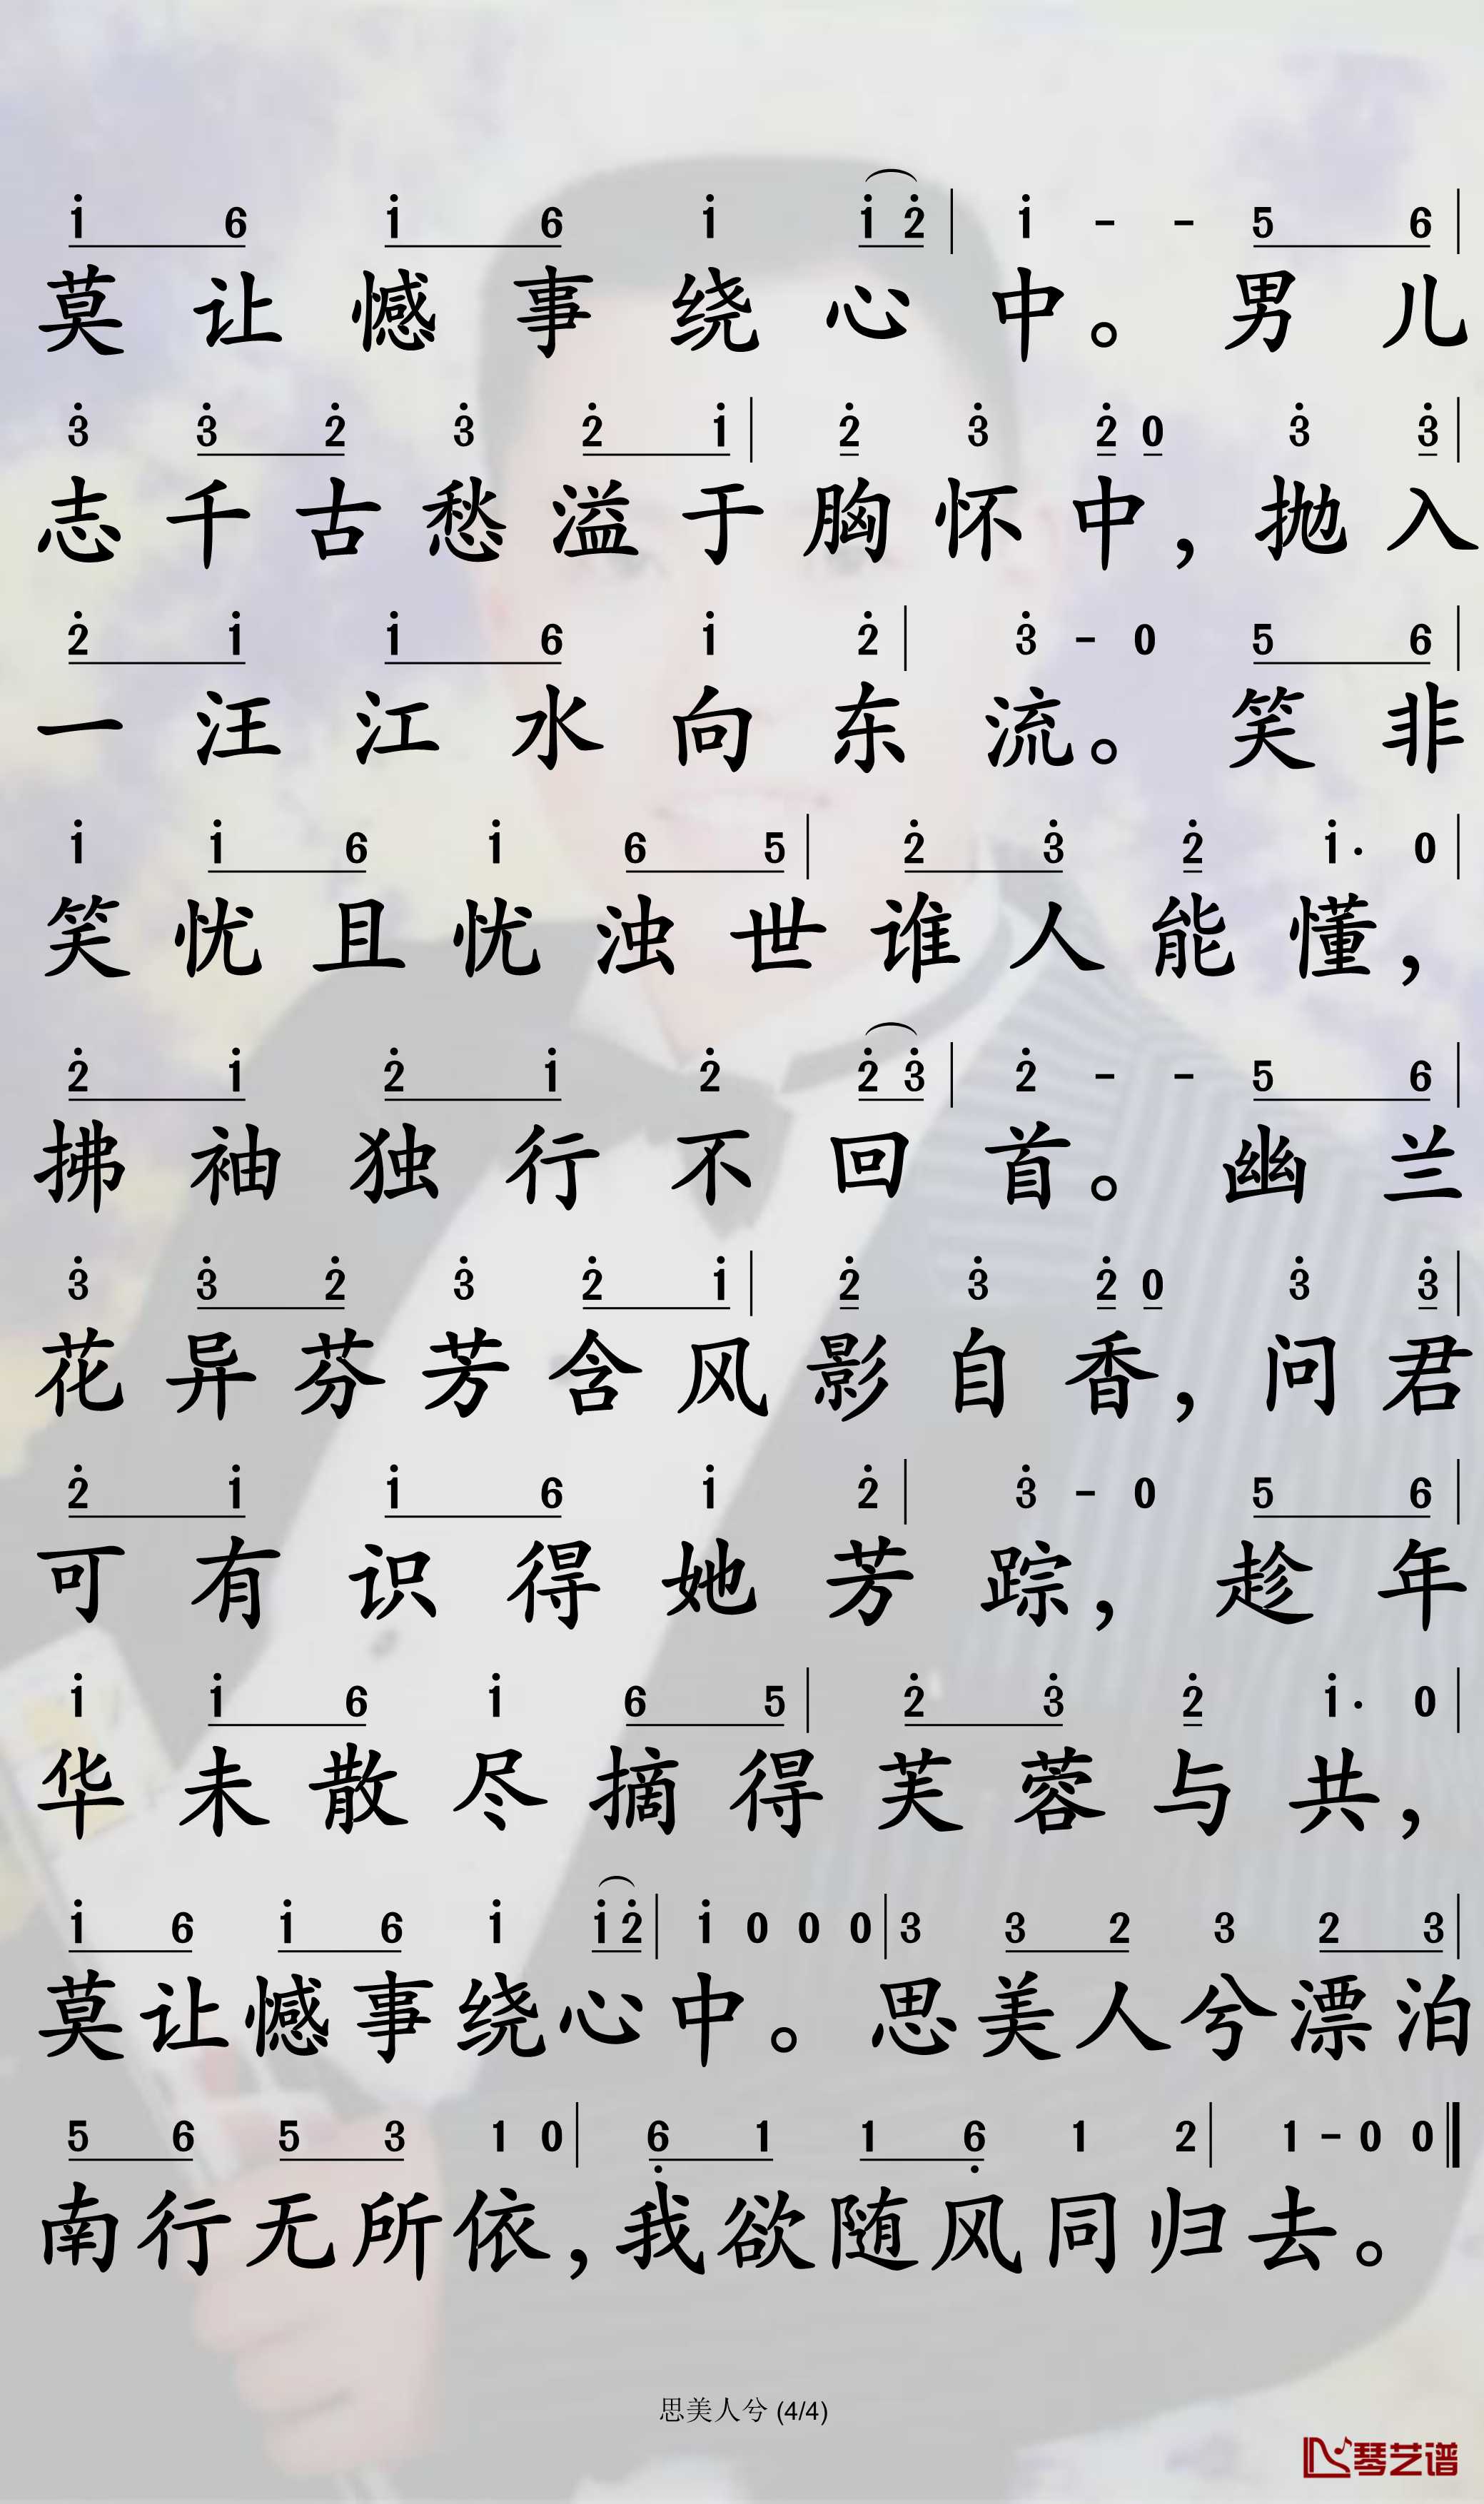 1̇ 6 1̇ 6 1̇ 1̇ 2̇ | 1̇ - - 5 6 |
莫让憾事绕心中。男儿
3̇ 3̇ 2̇ 3̇ 2̇ 1̇ | 2̇ 3̇ 2̇ 0 3̇ 3̇ |
志千古愁溢于胸怀中，抛入
2̇ 1̇ 1̇ 6 1̇ 2̇ | 3̇ - 0 5 6 |
一汪江水向东流。笑非
1̇ 1̇ 6 1̇ 6 5 | 2̇ 3̇ 2̇ 1̇· 0 |
笑忧且忧浊世谁人能懂，
2̇ 1̇ 2̇ 1̇ 2̇ 2̇ 3̇ | 2̇ - - 5 6 |
拂袖独行不回首。幽兰
3̇ 3̇ 2̇ 3̇ 2̇ 1̇ | 2̇ 3̇ 2̇ 0 3̇ 3̇ |
花异芬芳含风影自香，问君
2̇ 1̇ 1̇ 6 1̇ 2̇ | 3̇ - 0 5 6 |
可有识得她芳踪，趁年
1̇ 1̇ 6 1̇ 6 5 | 2̇ 3̇ 2̇ 1̇· 0 |
华未散尽摘得芙蓉与共，
1̇ 6 1̇ 6 1̇ 1̇ 2̇ | 1̇ 0 0 0 | 3 3 2 3 2 3 |
莫让憾事绕心中。思美人兮漂泊
5 6 5 3 1 0 | 6̣ 1 1 6̣ 1 2 | 1 - 0 0 ‖
南行无所依，我欲随风同归去。
思美人兮 (4/4)
琴艺谱